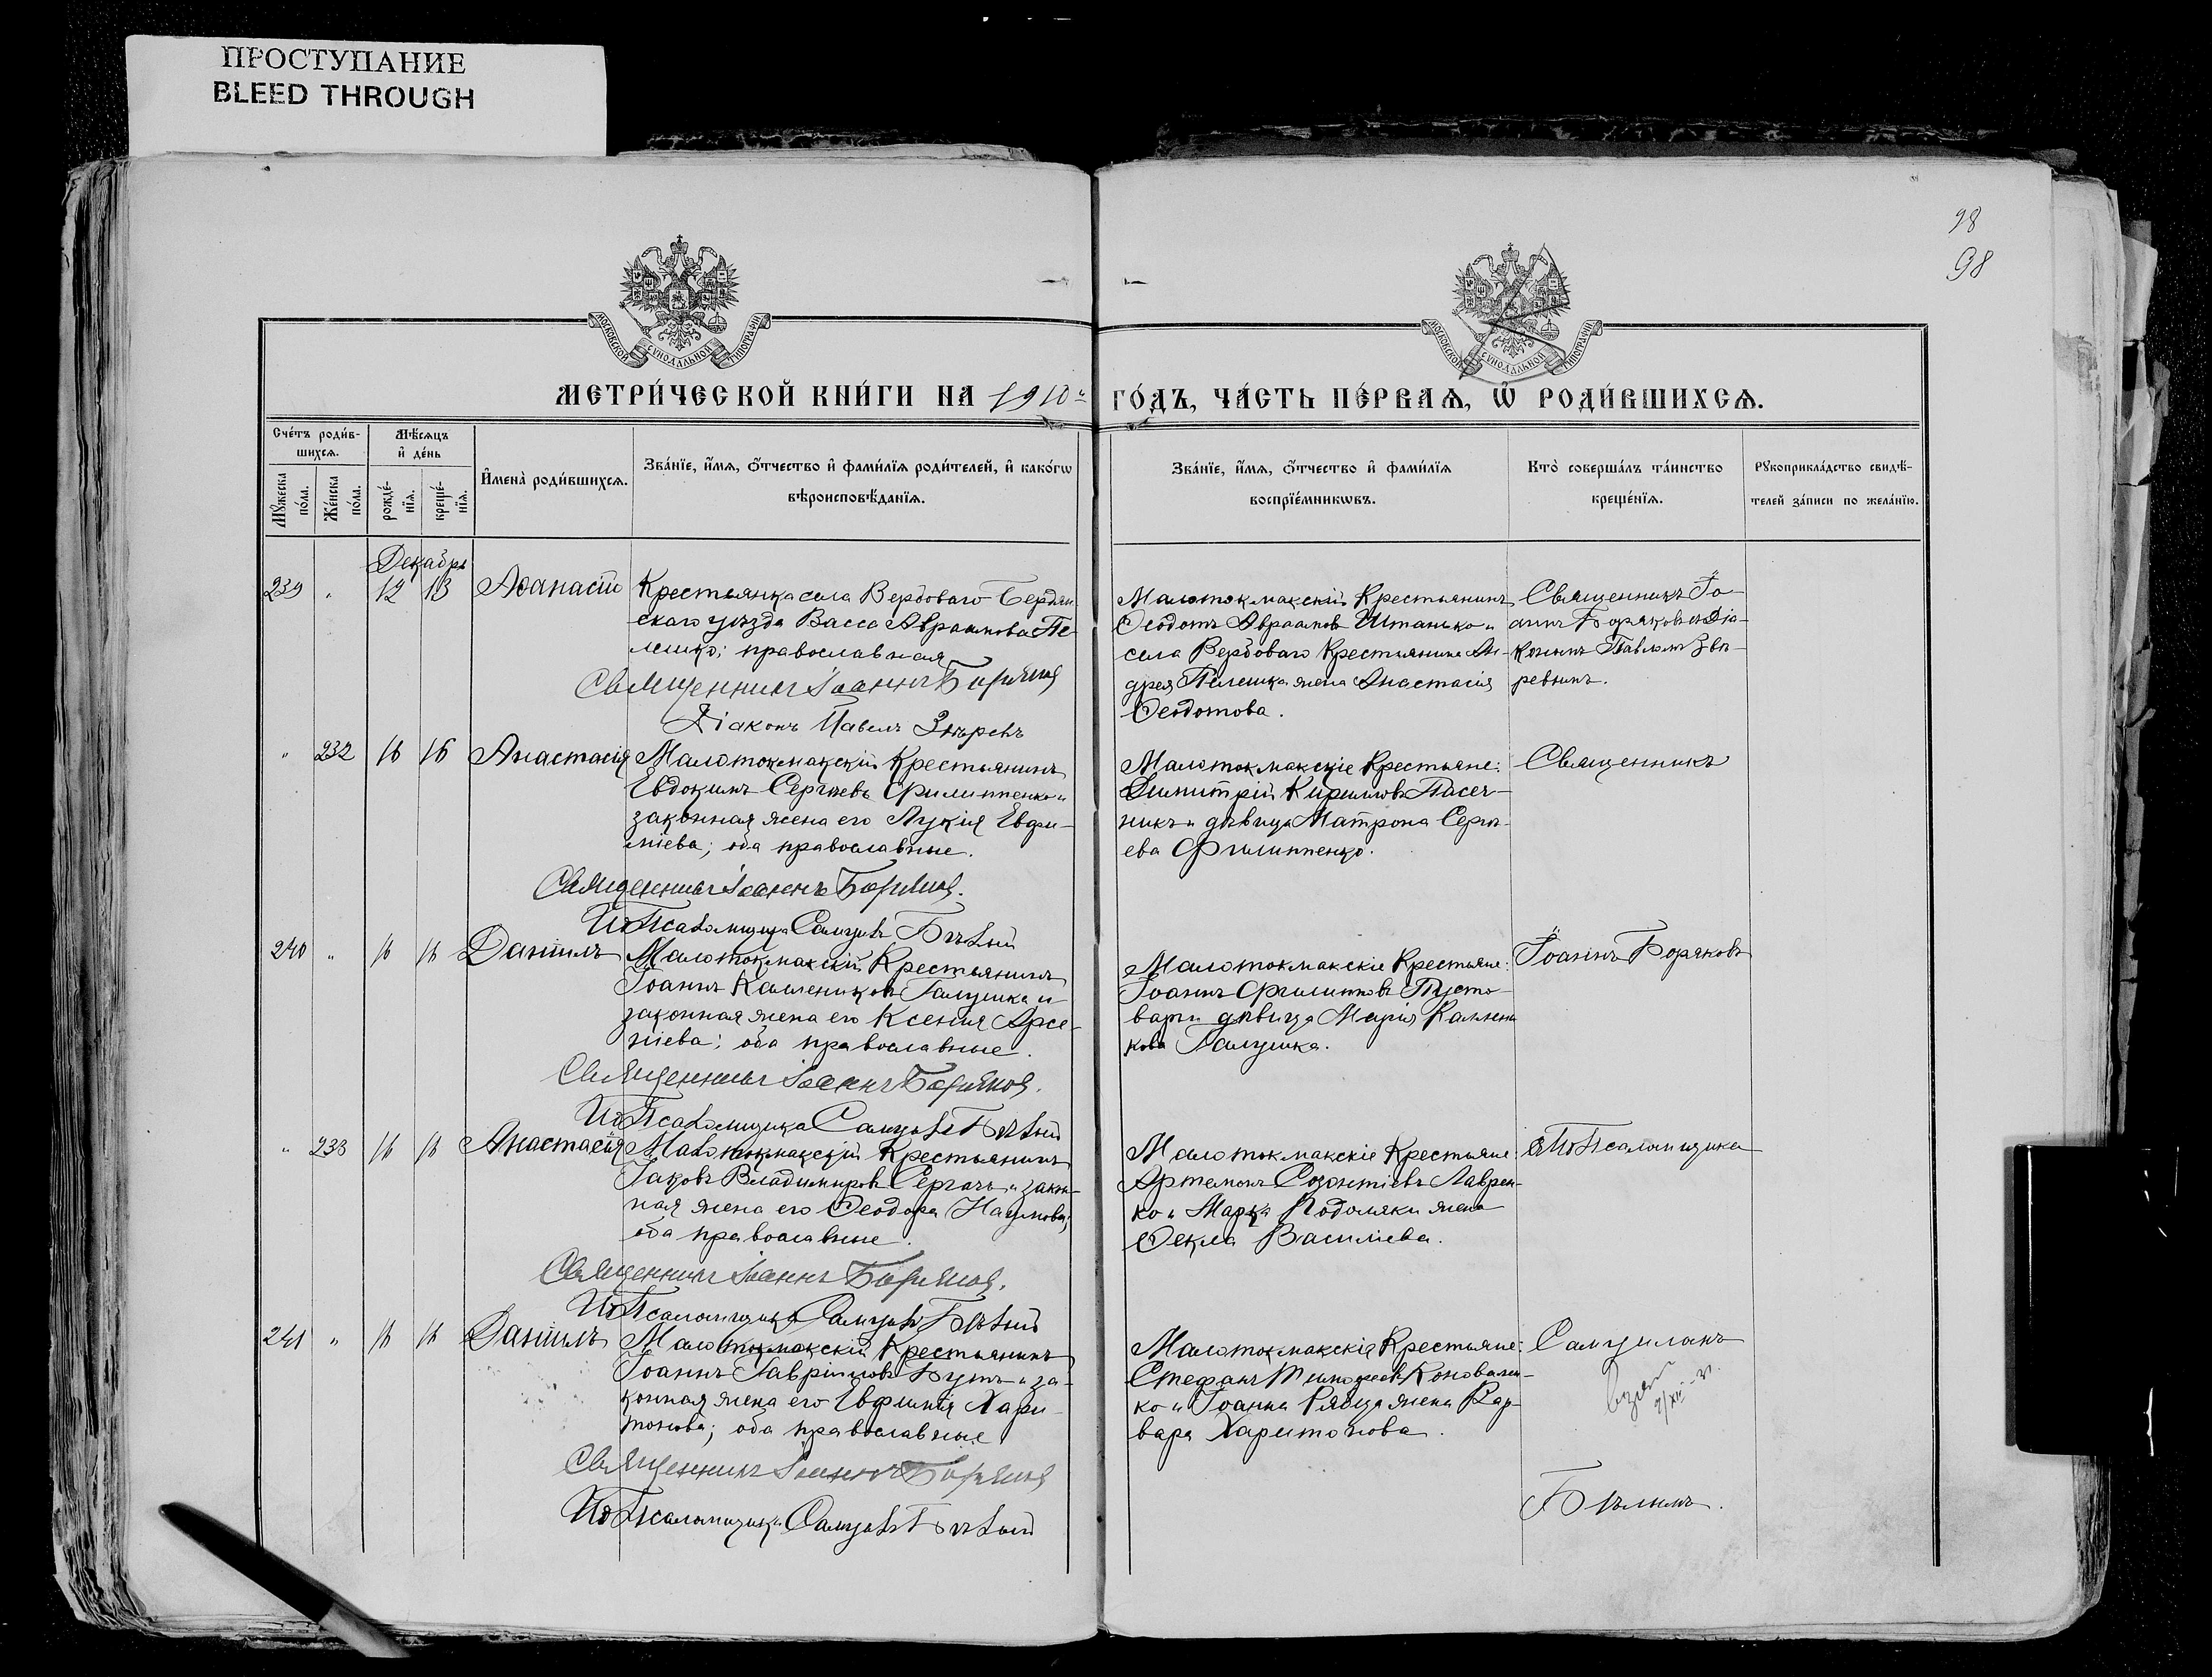 ПРОСТУПАНИЕ
BLEED THROUGH
98
98
МОСКОВСКОЙ СУНОДАЛЬНОЙ ТИПОГРАФИИ
МОСКОВСКОЙ СУНОДАЛЬНОЙ ТИПОГРАФИИ
МЕТРИ́ЧЕСКОЙ КНИ́ГИ НА 1910й ГО́ДЪ, ЧА́СТЬ ПЕ́РВАѦ, Ѡ҆ РОДИ́ВШИХСѦ.
Сче́тъ роди́в-
шихсѧ.
Мꙋ́жеска по́ла.
Же́нска по́ла.
Мѣ́сѧцъ
и҆ де́нь
рожде́-
нїѧ.
креще́-
нїѧ.
И҆мена̀ роди́вшихсѧ.
Зва́нїе, и҆́мѧ, ѻ҆́тчество и҆ фами́лїѧ роди́телей, и҆ како́гѡ
вѣроисповѣ́данїѧ.
Зва́нїе, и҆́мѧ, ѻ҆́тчество и҆ фами́лїѧ
воспрїе́мникѡвъ.
Кто̀ соверша́лъ та́инство
креще́нїѧ.
Рꙋкоприкла́дство свидѣ́-
телей за́писи по жела́нїю.
Декабрь
239 " 12 13 Аѳанасій
Крестьянка села Вербоваго Бердян
скаго уѣзда Васса Авраамова Пе-
лешко; православная
Священникъ Іоаннъ Боряковъ
Діаконъ Павелъ Звѣревъ
Малотокмакскій Крестьянинъ
Ѳеодотъ Авраамовъ Штанько и
села Вербоваго Крестьянина Ан-
дрея Пелешка жена Анастасія
Ѳеодотова.
Священникъ Іо-
аннъ Боряковъ съ Діа-
кономъ Павломъ Звѣ-
ревымъ.
" 232 16 16 Анастасія
Малотокмакскій Крестьянинъ
Евдокимъ Сергѣевъ Филиппенко и
законная жена его Лукія Евфи-
міева; оба православные.
Священникъ Іоаннъ Боряковъ.
И. д. Псаломщика Самуилъ Бѣлый
Малотокмакскіе Крестьяне:
Димитрій Кирилловъ Пасеч-
никъ и дѣвица Матрона Сергѣ-
ева Филиппенко.
Священникъ
240 " 16 16 Даніилъ
Малотокмакскій Крестьянинъ
Іоаннъ Каллениковъ Галушка и
законная жена его Ксенія Арсе-
ніева; оба православные.
Священникъ Іоаннъ Боряковъ.
И. д. Псаломщика Самуилъ Бѣлый
Малотокмакскіе Крестьяне:
Іоаннъ Филипповъ Пусто-
варъ и дѣвица Марія Каллени
кова Галушка.
Іоаннъ Боряковъ
" 233 16 16 Анастасія
Малотокмакскій Крестьянинъ
Іаковъ Владимировъ Сергачъ и закон-
ная жена его Ѳеодора Наумова;
оба православные.
Священникъ Іоаннъ Боряковъ.
И. д. Псаломщика Самуилъ Бѣлый
Малотокмакскіе Крестьяне:
Артемонъ Созонтіевъ Лаврен-
ко и Марка Подоляки жена
Ѳекла Василіева.
съ И. д. Псаломщика
241 " 16 16 Даніилъ
Малотокмакскій Крестьянинъ
Іоаннъ Гавріиловъ Бутъ и за-
конная жена его Евфимія Хари-
тонова; оба православные
Священникъ Іоаннъ Боряковъ
И. д. Псаломщика Самуилъ Бѣлый
Малотокмакскіе Крестьяне:
Стефанъ Тимоѳеевъ Коновален-
ко и Іоанна Рябца жена Вар-
вара Харитонова.
Самуиломъ
Бѣлымъ.